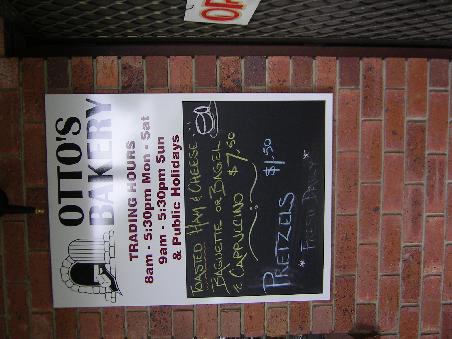 OTTO'S
BAKERY
TRADING HOURS
8am - 5:30pm Mon - Sat
9am - 5:30pm Sun
& Public Holidays
TOASTED HAM & CHEESE
BAGUETTE OR BAGEL
& CAPPUCCINO $7.50
PRETZELS $1.50
* FRESH DAILY *
OP